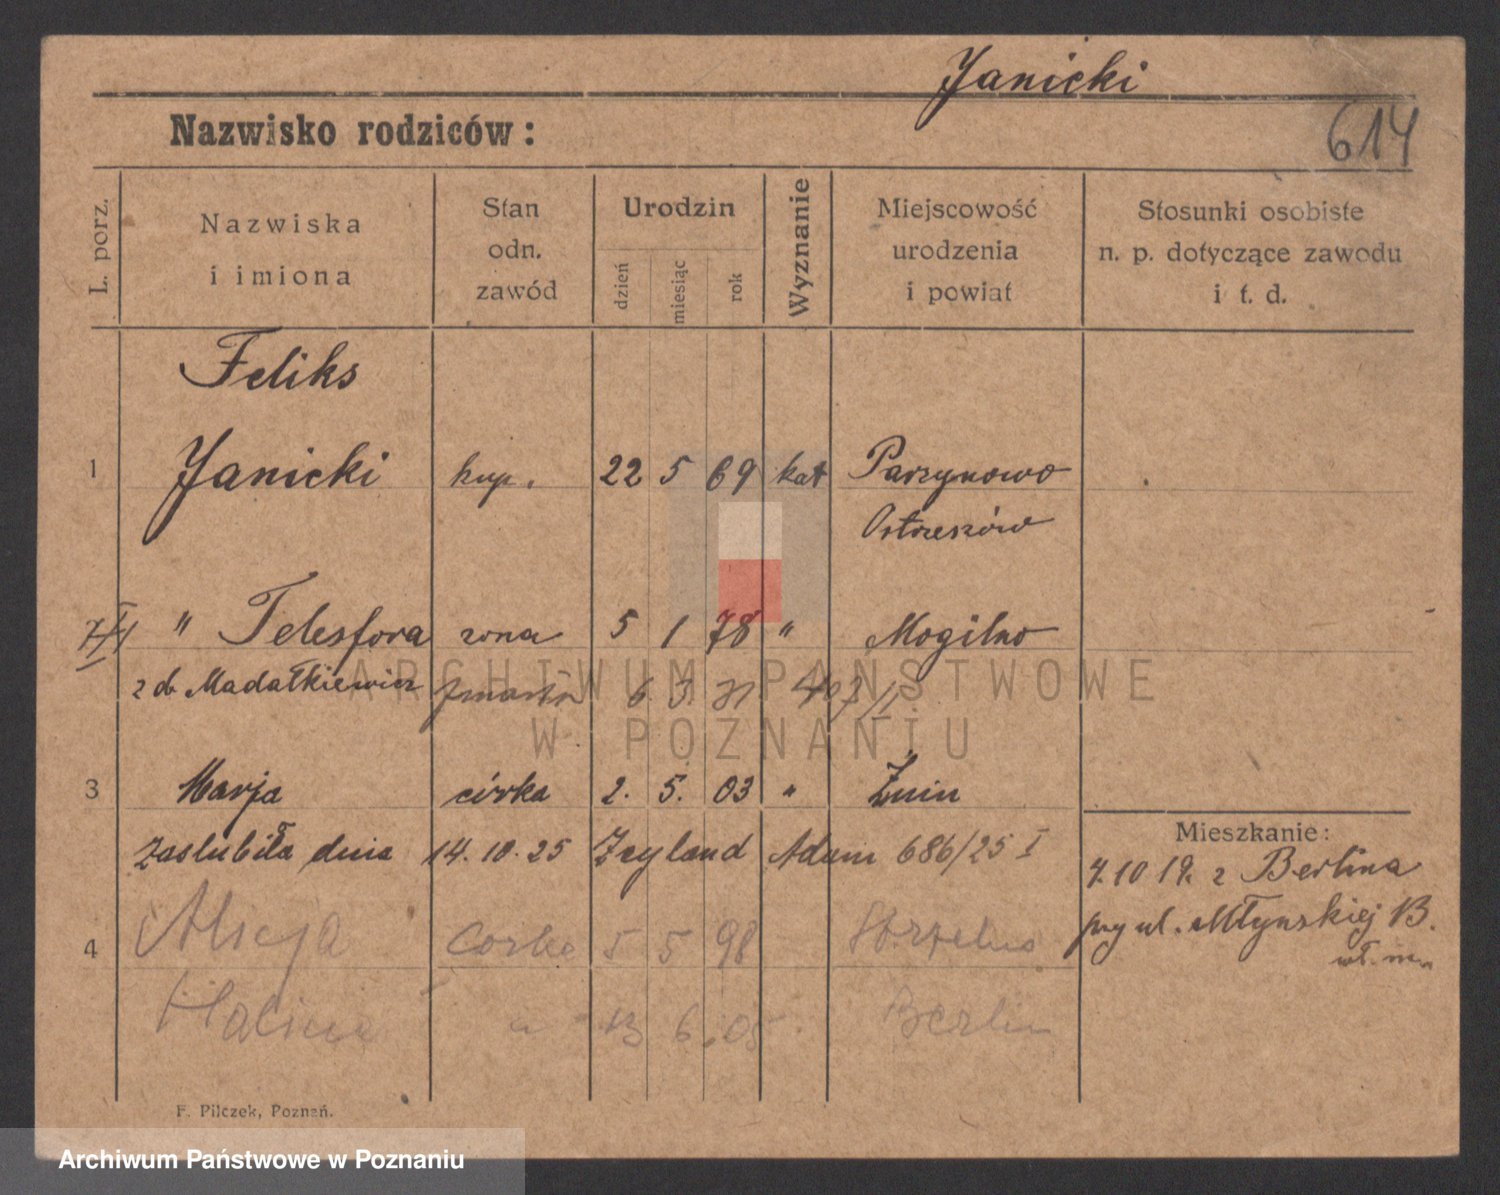 Janicki
Nazwisko rodziców:
614
L. porz.
Nazwiska
i imiona
Stan
odn.
zawód
Urodzin
dzień
miesiąc
rok
Wyznanie
Miejscowość
urodzenia
i powiat
Stosunki osobiste
n. p. dotyczące zawodu
i t. d.
Feliks
1 Janicki kup. 22 5 69 kat Parzynowo
Ostrzeszów
" Telesfora żona 5 1 78 " Mogilno
z d. Madałkiewicz zmarła 6. 3. 31
ARCHIWUM PAŃSTWOWE
W POZNANIU
3 Marja córka 2. 5. 03 " Żnin
Zaslubiła dnia 14.10.25 Zeyland Adam 686/25 I
Mieszkanie:
4.10 19. z Berlina
przy ul. Młyńskiej 13.
4 Alicja Corka 5 5 98 Strzelno
Halina " 13 6. 05 Berlin
F. Pilczek, Poznań.
Archiwum Państwowe w Poznaniu